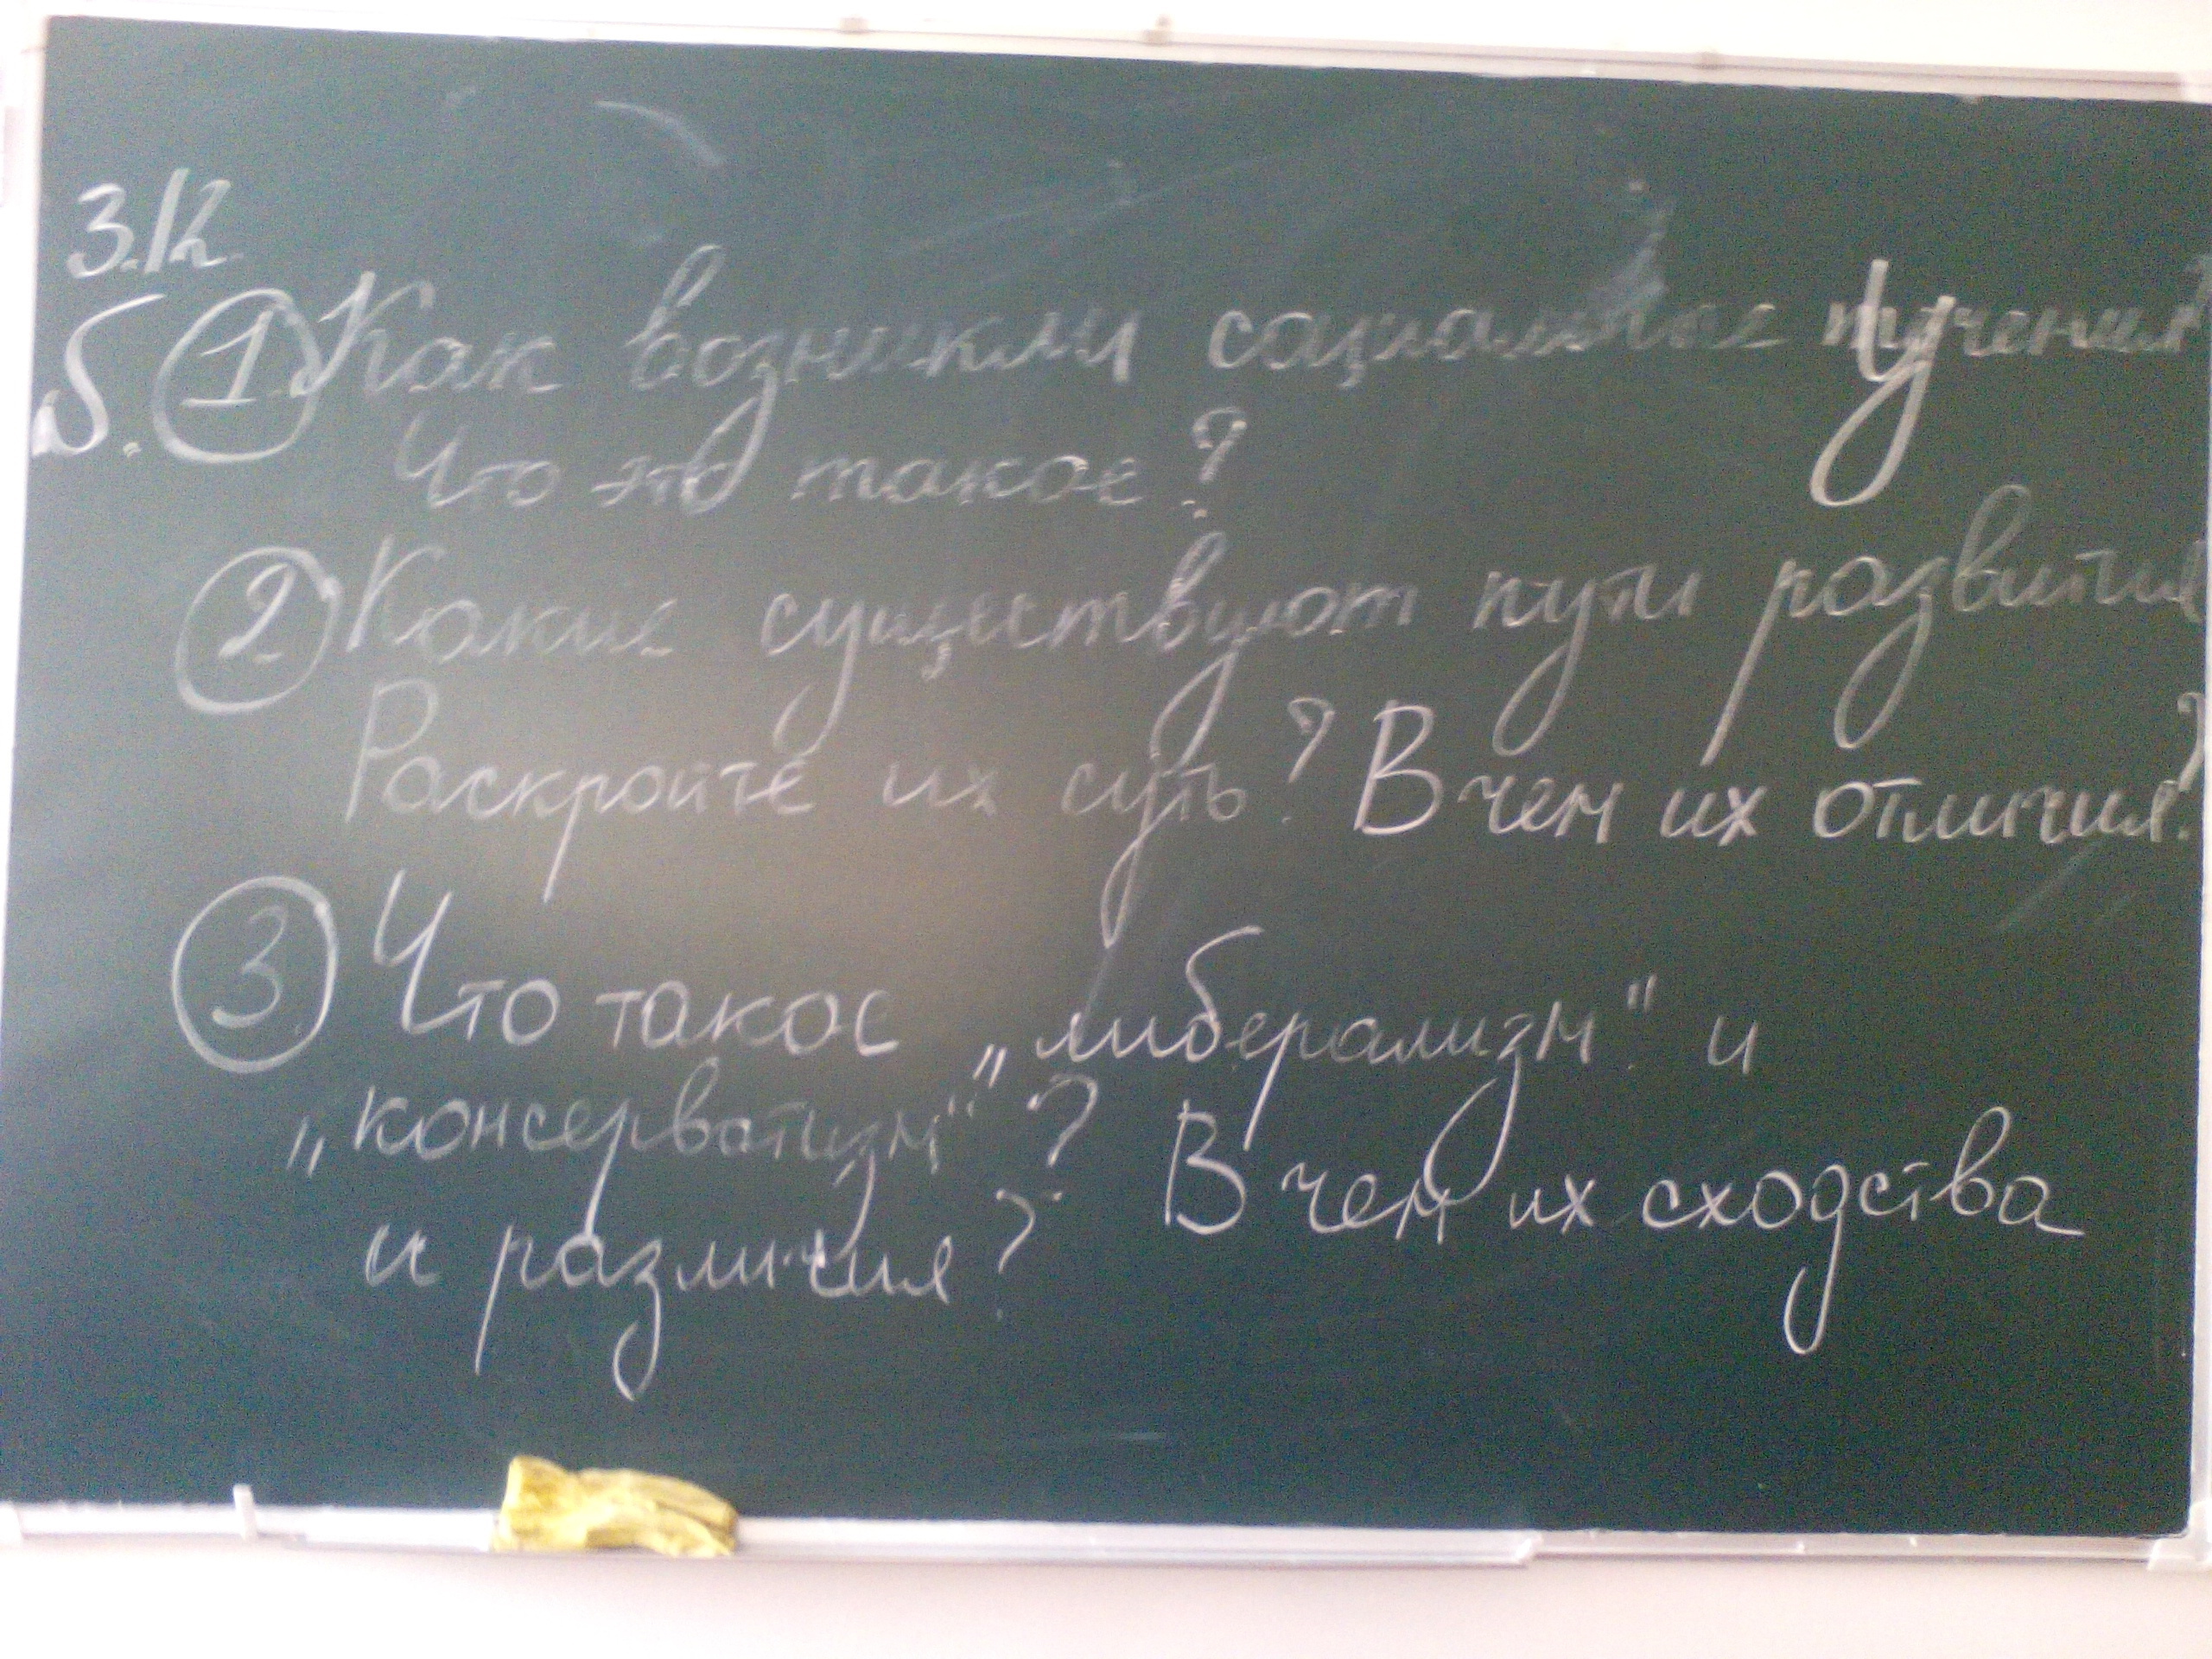 3.12.
Б. 1. Как возникли социальные учения?
Что это такое?
2 Какие существуют пути развития
Раскройте их суть? В чем их отличия?
3 Что такое „либерализм" и
„консерватизм"? В чем их сходства
и различия?